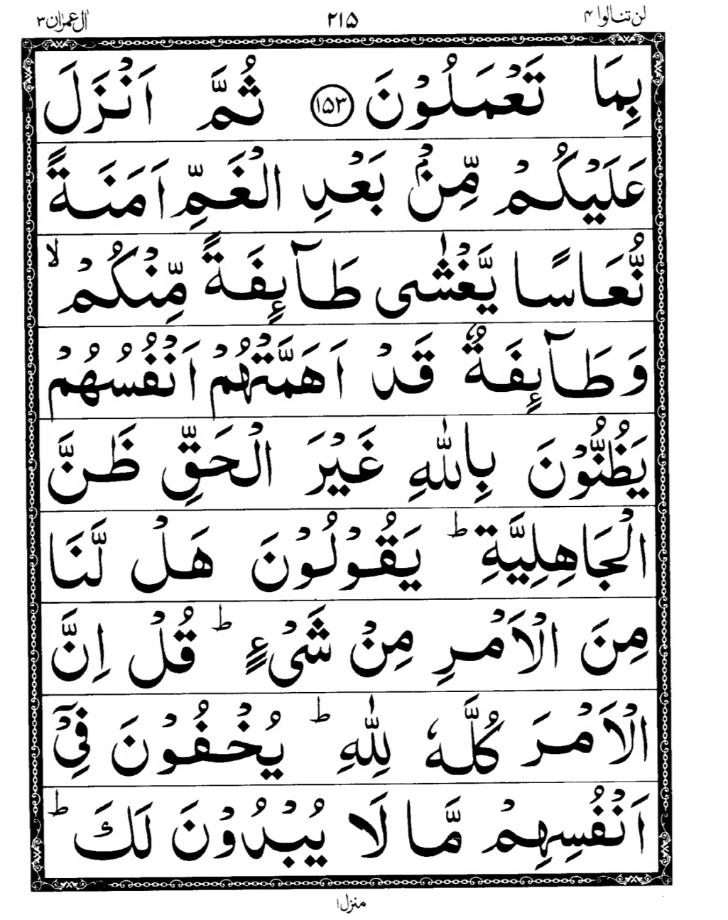 لن تنالوا ۴
۲۱۵
اٰل عمرٰن ۳
بِمَا تَعْمَلُوْنَ ۝۱۵۳ ثُمَّ اَنْزَلَ
عَلَيْكُمْ مِّنْۢ بَعْدِ الْغَمِّ اَمَنَةً
نُّعَاسًا يَّغْشٰى طَآئِفَةً مِّنْكُمْ ۙ
وَطَآئِفَةٌ قَدْ اَهَمَّتْهُمْ اَنْفُسُهُمْ
يَظُنُّوْنَ بِاللّٰهِ غَيْرَ الْحَقِّ ظَنَّ
الْجَاهِلِيَّةِ ؕ يَقُوْلُوْنَ هَلْ لَّنَا
مِنَ الْاَمْرِ مِنْ شَيْءٍ ؕ قُلْ اِنَّ
الْاَمْرَ كُلَّهٗ لِلّٰهِ ؕ يُخْفُوْنَ فِيْۤ
اَنْفُسِهِمْ مَّا لَا يُبْدُوْنَ لَكَ ؕ
منزل ۱